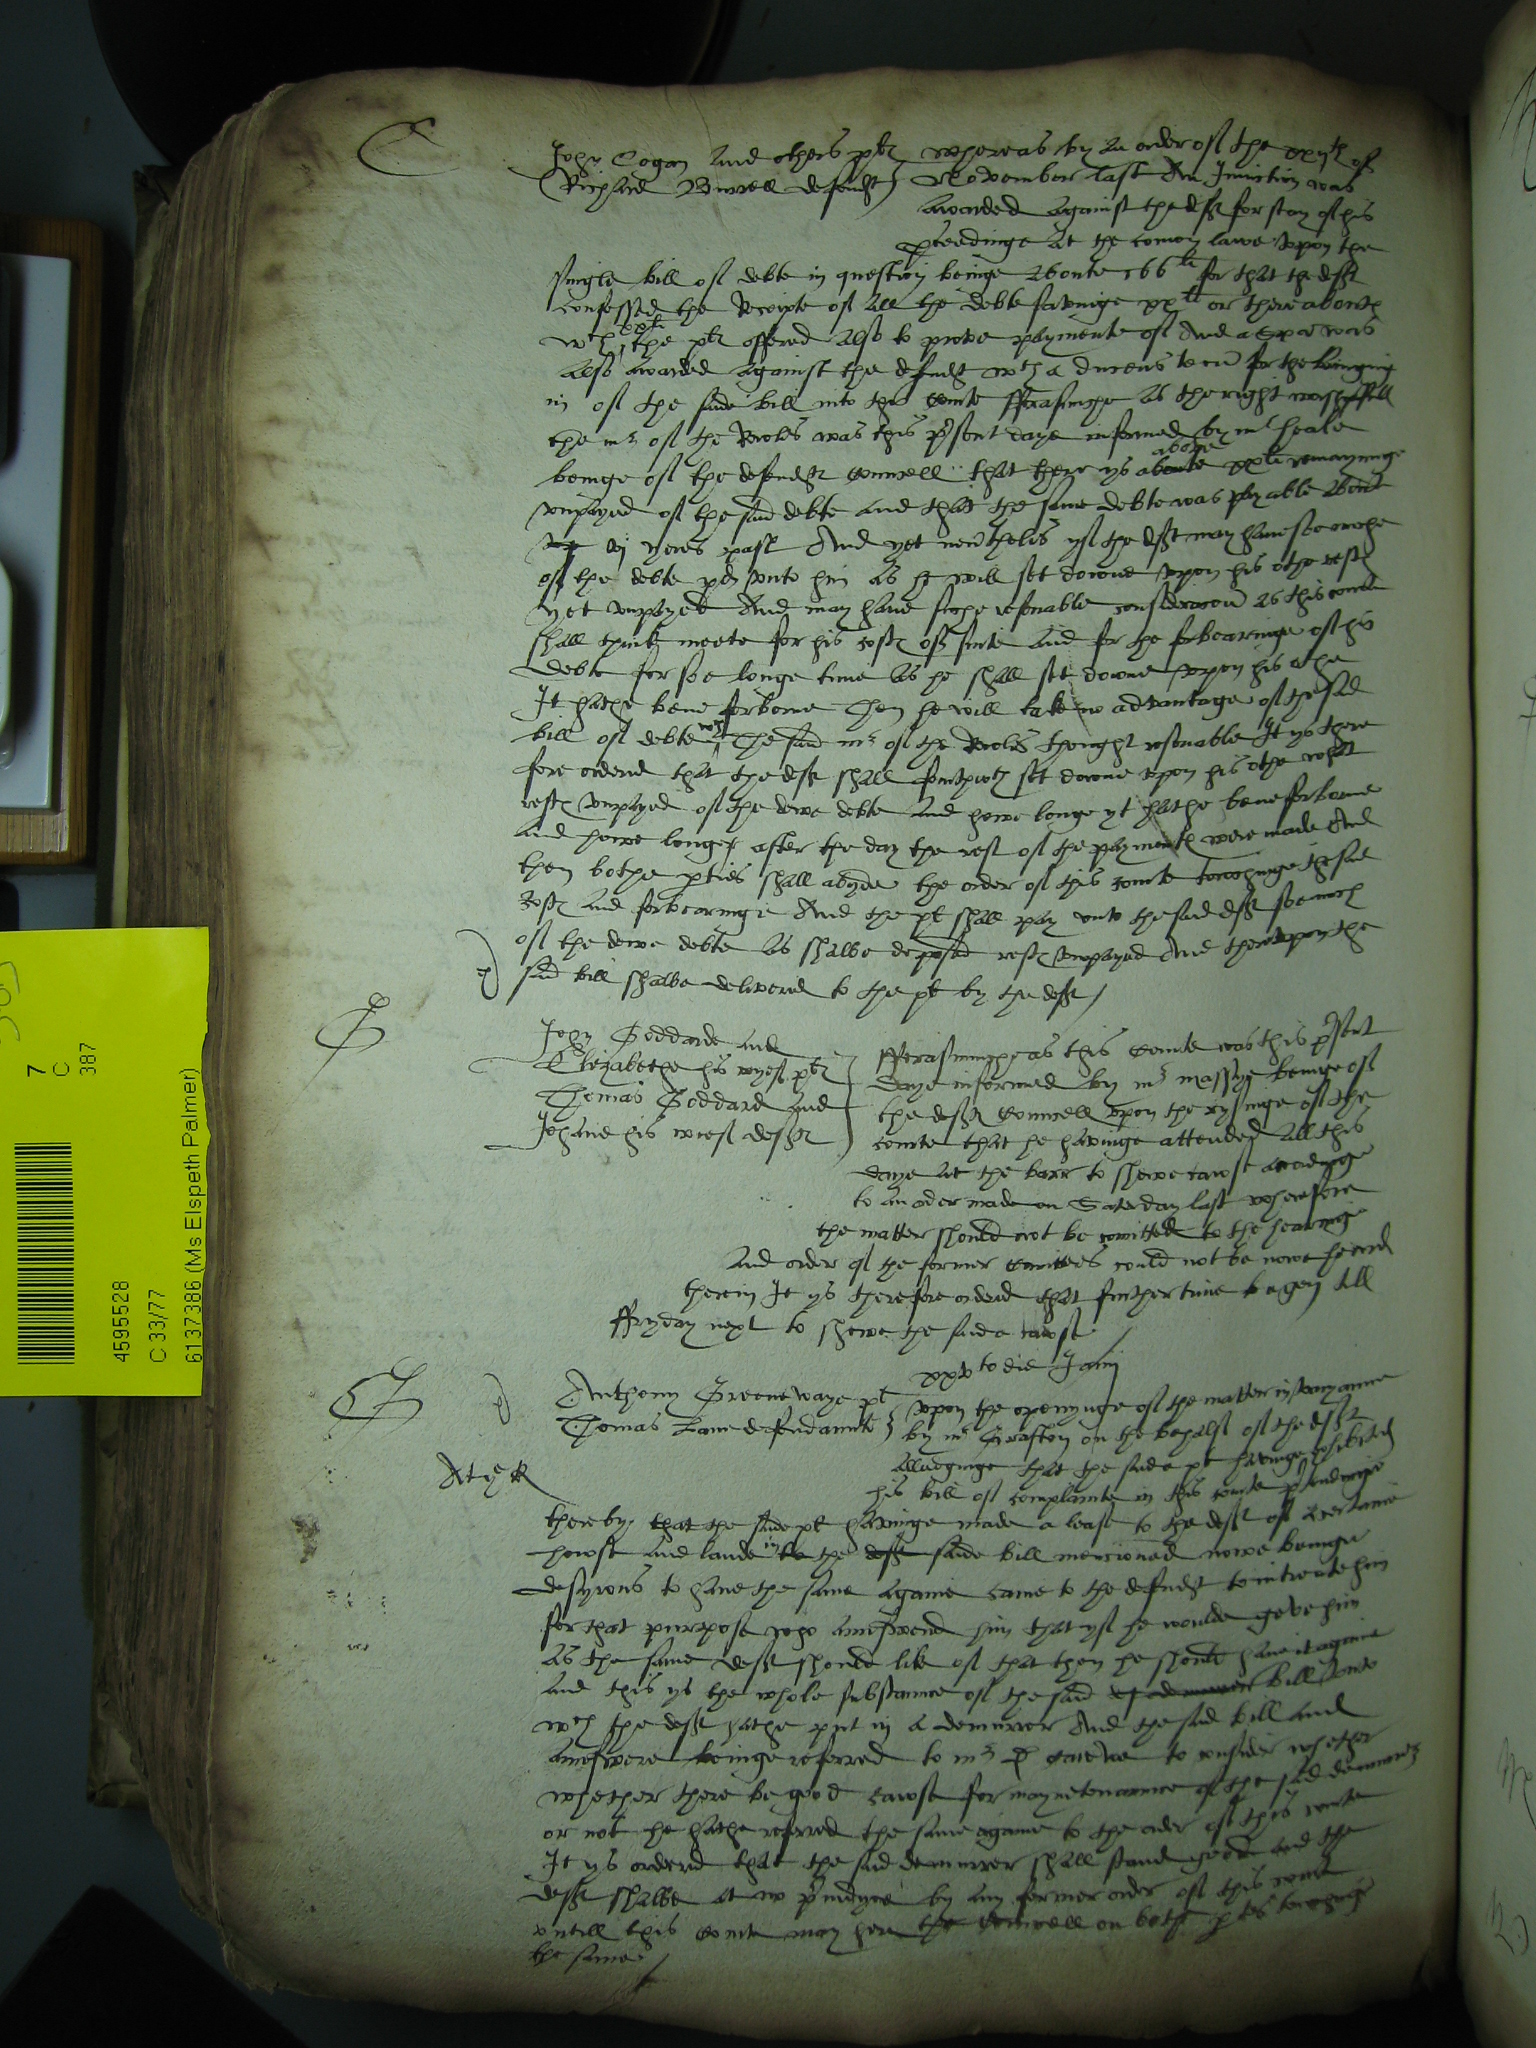 C
John Cogan and others pltes
Richard Burrell defendt
whereas by an order of the xxvjth of
November last An Iniuction was
awarded against the deft for stay of his
pceedinge at the comon lawe vpon the
single bill of debte in question beinge aboute 166li for that the deft
confessed the Receipte of all the debte savinge xxli or thereaboutes
wch xxli the pltes offered also to prove paymente of And a spa was
also awarded against the defendt wth a ducens tecu for the bringing
in of the saide bill into this courte fforasmuche as the right worshipfull
the mr of the Rooles was this psent daye informed by mr heale
beinge of the defendts councell that there ys aboute above xxli remayninge
vnpayed of the said debte and that the same debte was payable about
vj yeres past And yet neutheles yf the deft may have soe muche
of the debte pd vnto him as he will set downe vpon his othe restes
yet vnpayed And may have suche resonable consideracon as this courte
shall thinke meete for his costes of suite and for the forbearinge of his
debte for soe longe time as he shall set downe vpon his othe
It hathe bene forborne Then he will take no advantage of the said
bill of debte wch The said mr of the Rooles thought resonable It ys there
fore ordered that the deft shall fourthwth set downe vpon his othe what
restes vnpayed of the dewe debte and howe longe yt hathe bene forborne
and howe longe after the day the rest of the paymentes were made And
then bothe pties shall abyde the order of this courte towchinge the said
costes and forbearinge And the plt shall pay vnto the said deft soe much
of the dewe debte as shalbe deposed restes vnpayed And therevpon the
said bill shalbe delivered to the plt by the deft
G
John Goddarde and
Elizabethe his wyef pltes
Thomas Goddard and
Johane his wief deftes
fforasmuche as this courte was this psent
daye informed by mr massye beinge of
the deftes councell vpon the rysinge of the
courte that he havinge attended all this
daye at the barr to shewe cawse accordinge
to an order made on Saterday last wherefore
the matter should not be comitted to the hearinge
and order of the former comittees could not be nowe heard
therein It ys therefore ordered that further time be geven till
ffryday next to shewe the saide cawse
xxvto die Januarij
G
Anthony Greenewaye plt
Thomas Lane defendannte
vpon the openynge of the matter
by mr Grafton on the behalf of the deft
alledginge that the saide plt havinge exhibited
his bill of complainte in this courte ptendinge
thereby that the saide plt havinge made a lease to the deft of a certaine
howse and lande in to the deft saide bill mencioned nowe beinge
desyrous to have the same againe came to the defendt to intreate him
for that purpose who annswered him that yf he woulde geve him
as the same deft should like of that then he should have it againe
and this ys the whole substannce of the said bill vnto
wch the deft hathe put in a demurrer And the said bill and
annswere beinge referred to mr D Carewe to consider whether
whether there be good cawse for mayntenannce of the said demurrer
or not he hathe referred the same againe to the order of this courte
It ys ordered that the said demurrer shall stand good and the
deft shalbe at no pindyce by any former order of this courte
vntill this courte may here the councell on bothe ptes towchinge
the same
4595528
C 33/77
6137386 (Ms Elspeth Palmer)
7
C
387